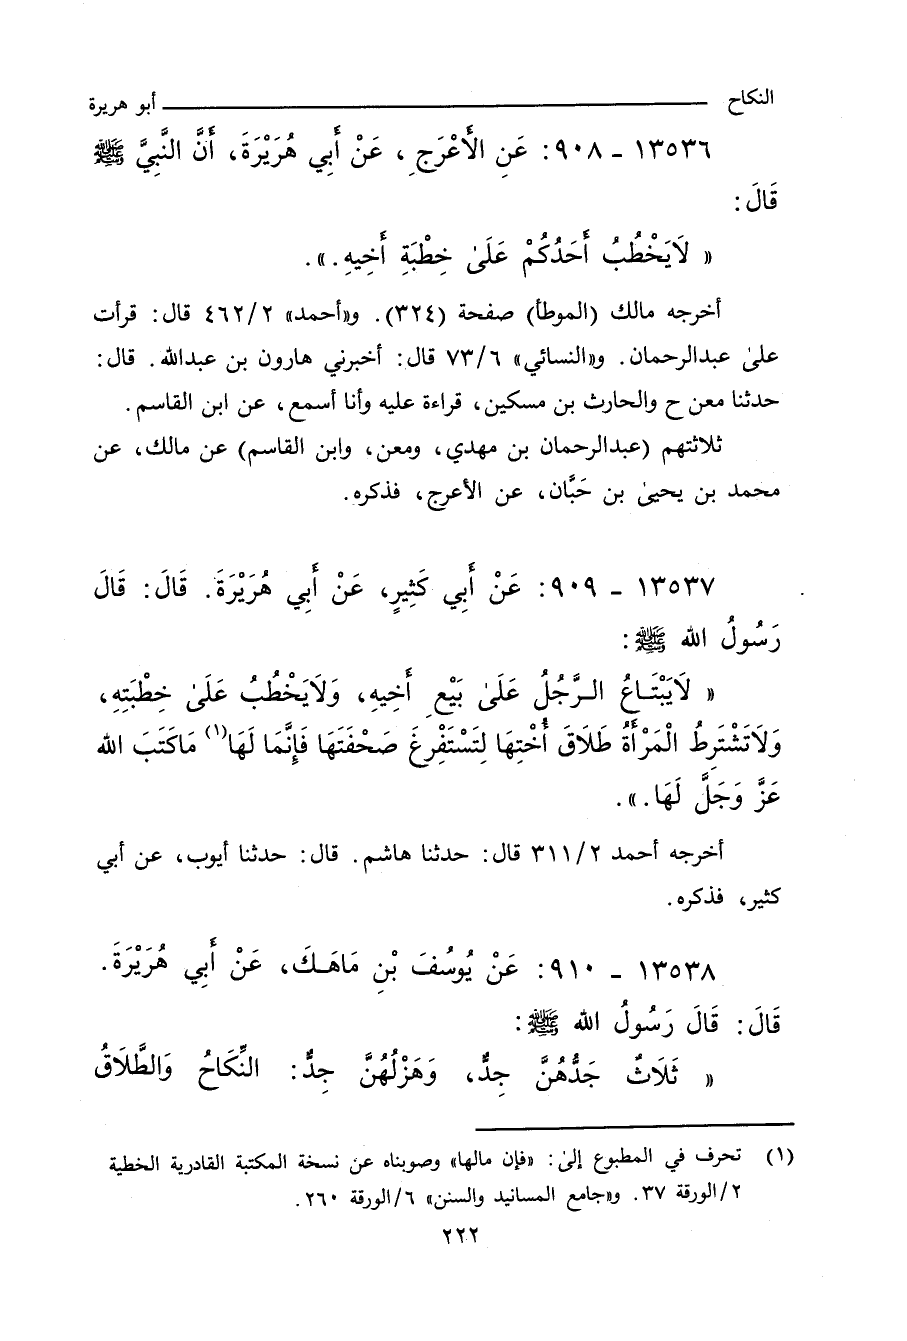 النكاح ـــــــــــــــــــــــــــــــ أبو هريرة
١٣٥٣٦ - ٩٠٨: عَنِ الأَعْرَجِ، عَنْ أَبِي هُرَيْرَةَ، أَنَّ النَّبِيَّ ﷺ
قَالَ:
« لَايَخْطُبُ أَحَدُكُمْ عَلَىٰ خِطْبَةِ أَخِيهِ.».
أخرجه مالك (الموطأ) صفحة (٣٢٤). و«أحمد» ٤٦٢/٢ قال: قرأت
علىٰ عبدالرحمان. و«النسائي» ٧٣/٦ قال: أخبرني هارون بن عبدالله. قال:
حدثنا معن ح والحارث بن مسكين، قراءة عليه وأنا أسمع، عن ابن القاسم.
ثلاثتهم (عبدالرحمان بن مهدي، ومعن، وابن القاسم) عن مالك، عن
محمد بن يحيىٰ بن حَبَّان، عن الأعرج، فذكره.
١٣٥٣٧ - ٩٠٩: عَنْ أَبِي كَثِيرٍ، عَنْ أَبِي هُرَيْرَةَ. قَالَ: قَالَ
رَسُولُ الله ﷺ:
« لَايَبْتَاعُ الرَّجُلُ عَلَىٰ بَيْعِ أَخِيهِ، وَلَايَخْطُبُ عَلَىٰ خِطْبَتِهِ،
وَلَاتَشْتَرِطُ الْمَرْأَةُ طَلَاقَ أُخْتِهَا لِتَسْتَفْرِغَ صَحْفَتَهَا فَإِنَّمَا لَهَا(١) مَاكَتَبَ الله
عَزَّ وَجَلَّ لَهَا.».
أخرجه أحمد ٣١١/٢ قال: حدثنا هاشم. قال: حدثنا أيوب، عن أبي
كثير، فذكره.
١٣٥٣٨ - ٩١٠: عَنْ يُوسُفَ بْنِ مَاهَكَ، عَنْ أَبِي هُرَيْرَةَ.
قَالَ: قَالَ رَسُولُ الله ﷺ:
« ثَلَاثٌ جَدُّهُنَّ جِدٌّ، وَهَزْلُهُنَّ جِدٌّ: النِّكَاحُ وَالطَّلَاقُ
(١) تحرف في المطبوع إلىٰ: «فإن مالها» وصوبناه عن نسخة المكتبة القادرية الخطية
٢/الورقة ٣٧. و«جامع المسانيد والسنن» ٦/الورقة ٢٦٠.
٢٢٢